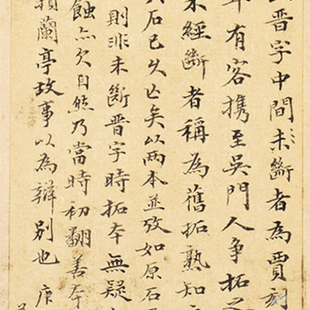 晋字中間未斷者為賈刻
年有客携至吳門人争拓之
未經斷者稱為舊拓熟知
石已乆亡矣以兩本並攷如原石
則非未斷晋字時拓本無疑
蝕亦欠自然乃當時初翻善本
蘭亭故事以為辨别也庚